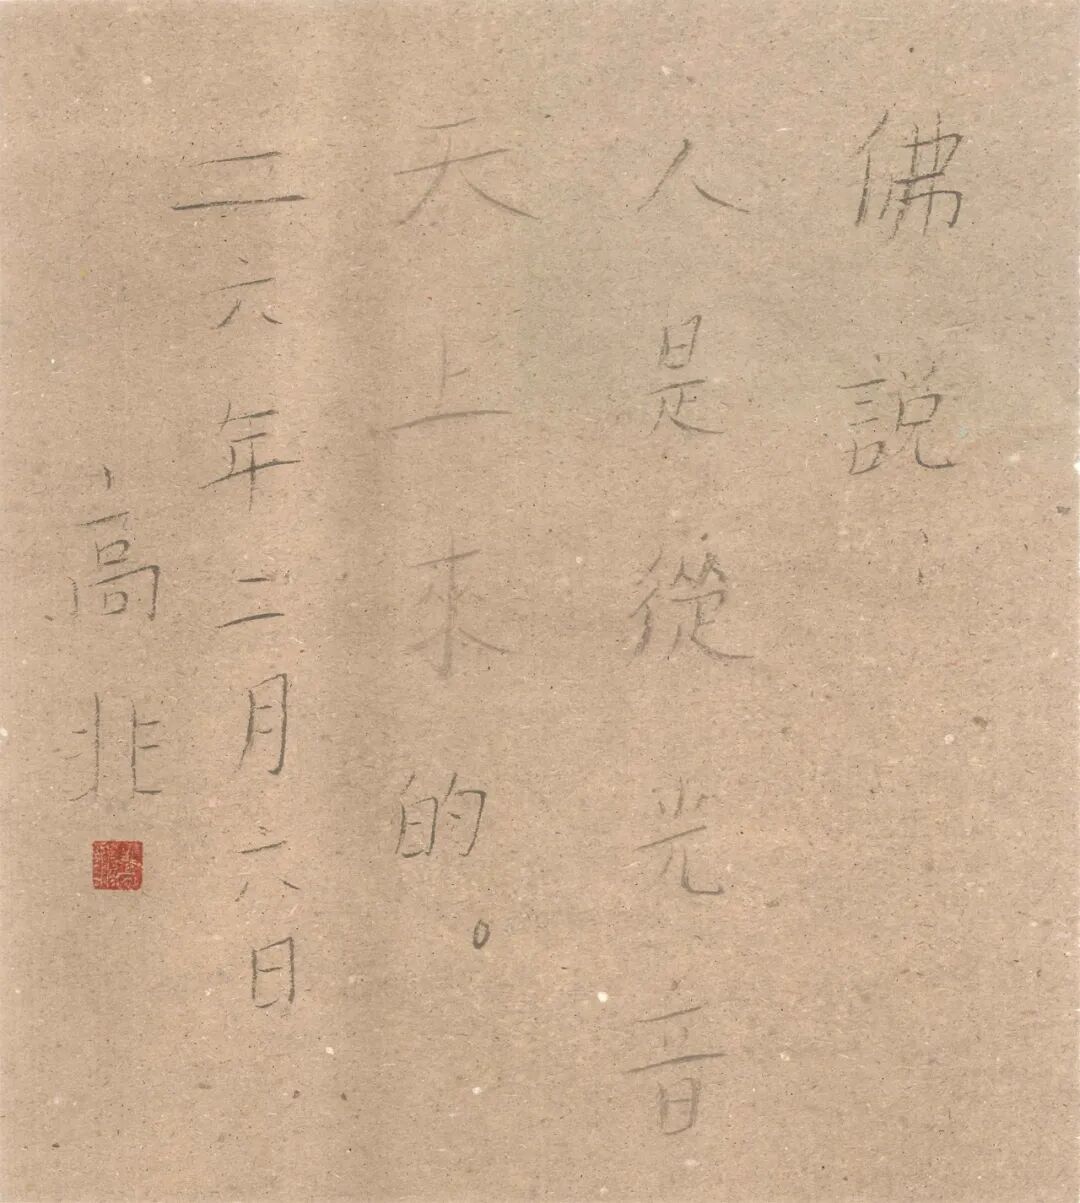 佛說：
人是從光音
天上來的。
二六年二月六日
高非